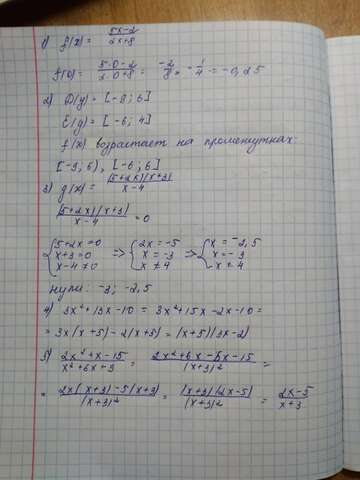 1) f(x) = (5x-2)/(2x+8)
f(0) = (5·0-2)/(2·0+8) = -2/8 = -1/4 = -0,25
2) D(y) = [-9; 6]
E(y) = [-6; 4]
f(x) возрастает на промежутках:
3) g(x) = (5+2x)(x+3)/(x-4)
(5+2x)(x+3)/(x-4) = 0
{5+2x=0 => {2x=-5 => {x=-2,5
x+3=0 x=-3 x=-3
x-4≠0 x≠4 x≠4
нули: -3; -2,5
4) 3x²+13x-10 = 3x²+15x-2x-10 =
= 3x(x+5)-2(x+5) = (x+5)(3x-2)
5) (2x²+x-15)/(x²+6x+9) = (2x²+6x-5x-15)/(x+3)² =
= (2x(x+3)-5(x+3))/(x+3)² = (x+3)(2x-5)/(x+3)² = (2x-5)/(x+3)